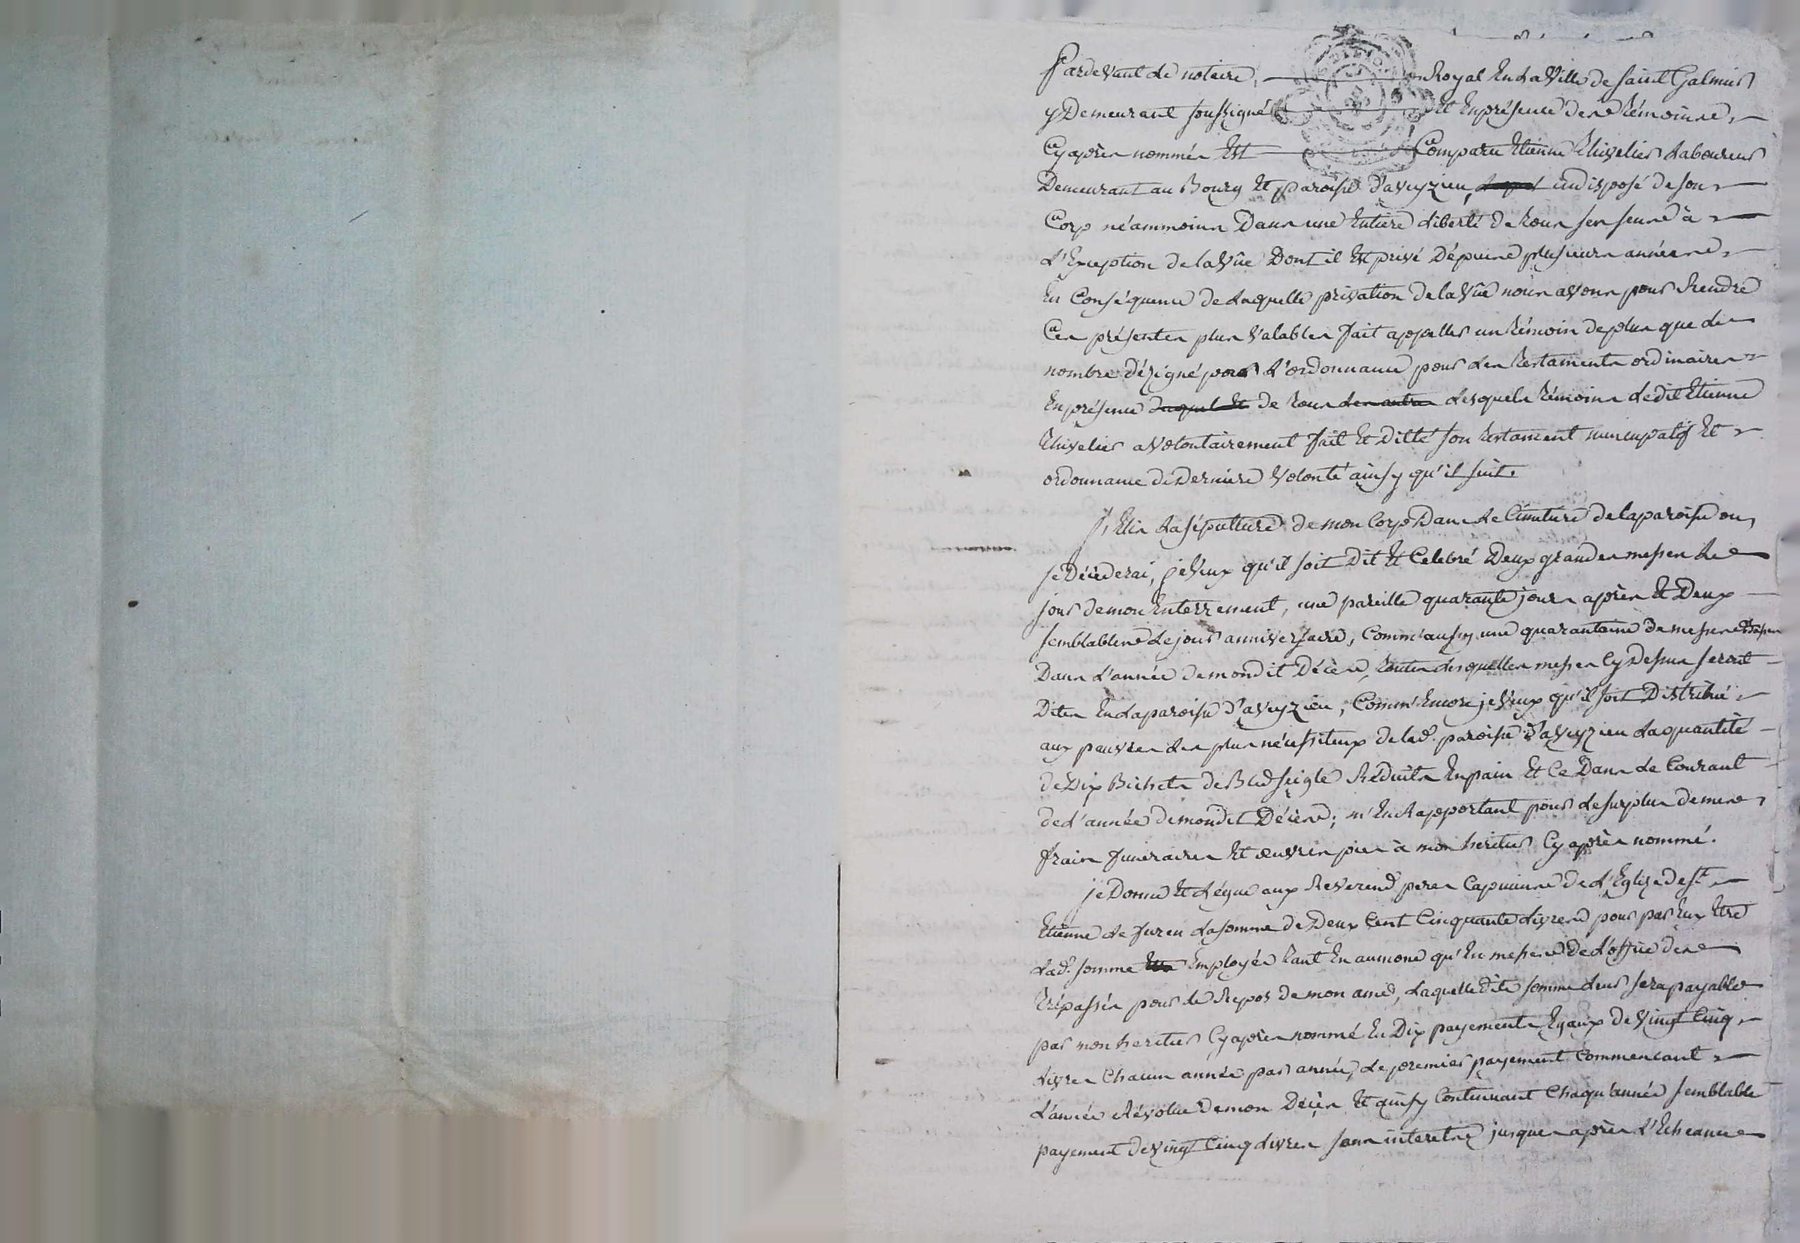 Pardevant le notaire, Royal En la Ville de Saint Galmier
y Demeurant soussigné Et En présence dene témoins,
Cy après nommés Est Comparu Etienne Thivelier Laboureur
Demeurant au Bourg Et paroisse d'aveyzieu, indisposé de son
Corp né'ammoins Dans une Entiere liberté de tous ses sens à
L'Exception de la Vûe Dont il Est privé Dépuis plusieurs années,
En Conséquence de Laquelle privation de la Vûe nous avons pour Rendre
Ces présentes plus Valables fait appeller un témoin de plus que le
nombre dézigné par L'ordonnance pour Les testaments ordinaires
En présence de tous Lesquels témoins Ledit Etienne
Thivelier a Volontairement fait Et Dicté son testament nuncupatif Et
ordonnance de Derniere Volonté ainsy qu'il suit.
J'Elis La sépulture de mon Corp Dans Le Cimitiere de la paroisse ou
je Décéderai, je Veux qu'il soit Dit Et Celebré Deux grandes messes Le
jour de mon Enterrement, une pareille quarante jours après Et Deux
semblables Le jour anniversaire, Comm'aussy une quarantaine de messes Basses
Dans L'année de mondit Décès, toutes Lesquelles messes Cy Dessus seront
Dites En La paroisse D'aveyzieu, Comm'Encore je Veux qu'il soit Distribué
aux pauvres Les plus nécessiteux de lad. paroisse D'aveyzieu La quantité
de Dix Bichets de Bled seigle Réduits En pain Et Ce Dans Le Courant
de L'année de mondit Décès; m'En Rapportant pour Le surplus de mes
frais funeraires Et œuvres pies à mon heritier Cy après nommé.
je Donne Et Légue aux Reverend peres Capucins de L'Eglize de St
Etienne de furen La somme de Deux Cent Cinquante Livres pour par Eux Etre
Lad. somme Employée tant En aumone qu'En messes De L'office des
trépassés pour le Repos de mon ame, Laquelle dite somme Leur sera payable
par mon heritier Cy après nommé En Dix payements Egaux de Vingt Cinq
Livres Chacun année par année, Le premier payement Commencant
L'année Révolue de mon Décès Et ainsy Continuant Chaqu'année semblable
payement de Vingt Cinq Livres sans interets jusques après L'Echeance